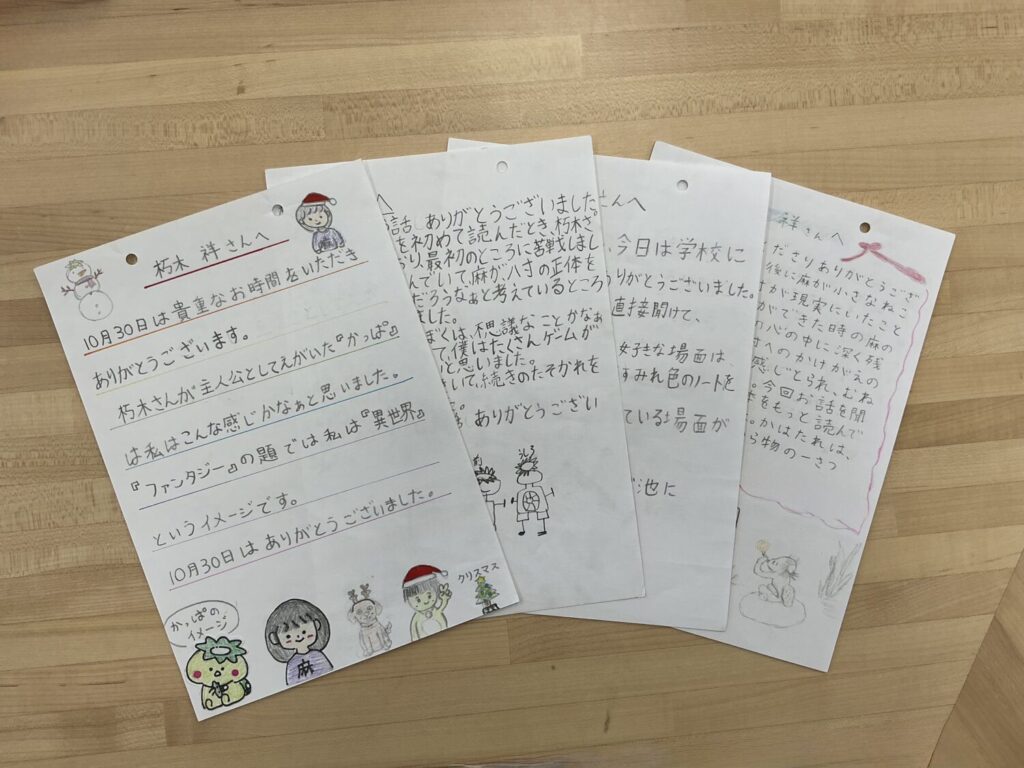 朽木 祥さんへ
10月30日は貴重なお時間をいただき
ありがとうございます。
朽木さんが主人公としてえがいた『かっぱ』
は私はこんな感じかなぁと思いました。
『ファンタジー』の題では私は『異世界』
というイメージです。
10月30日はありがとうございました。
かっぱの
イメージ
麻
麻
クリスマス
話、ありがとうございました
を初めて読んだとき、朽木さ
り、最初のところに苦戦しまし
んでいて、麻が、八寸の正体を
だろうなぁと考えているところ
ました。
ぼくは、不思議なことかなぁ
て、僕はたくさんゲームが
と思いました。
いて、続きのたそがれを
ありがとうござい
さんへ
、今日は学校に
りがとうございました。
直接聞けて、
好きな場面は、
すみれ色のノートを
ている場面が
池に
祥さんへ
ださりありがとうござ
後に麻が小さなねこ
が現実にいたこと
ができた時の麻の
心の中に深く残
へのかけがえの
感じとられ、むね
。今回お話を聞
をもっと読んで
。かはたれは、
ら物の一さつ